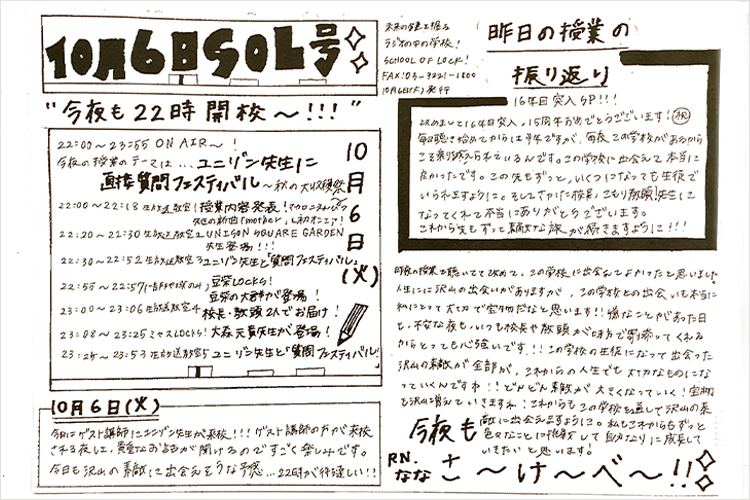 10月6日SOL号
"今夜も22時開校〜!!!"
未来の鍵を握る
ラジオの中の学校!
SCHOOL OF LOCK!
FAX:03-3221-1800
10月6日(火)発行
昨日の授業の
振り返り
16年目突入SP!!!
改めまして16年目突入、15周年おめでとうございます!㊗
毎日聴き始めてからは半年ですが、毎晩この学校があるから
こそ乗り越えられているんです。この学校に出会えて本当に
良かったです。この先もずっと、いくつになっても生徒で
いられますように。そしてさかた校長、こもり教頭!先生に
なってくれて本当にありがとうございます。
これから先もずっと素敵な旅が続きますように!!!
22:00〜23:55 ON AIR〜!
今夜の授業のテーマは...ユニゾン先生に
直接質問フェスティバル〜秋の大収穫祭
10月6日(火)
22:00〜22:18 生放送教室1 授業内容発表!マカロニえんぴつ
先生の新曲「mother」も初オンエア!
22:20〜22:30 生放送教室2 UNISON SQUARE GARDEN
先生登場!!!
22:30〜22:52 生放送教室3 ユニゾン先生と「質問フェスティバル」
22:55〜22:57 豆柴LOCKS!
豆柴の大群が登場!
23:00〜23:06 生放送教室4 校長・教頭2人でお届け!
23:08〜23:25 ミセスLOCKS! 大森元貴先生が登場!
23:25〜23:53 生放送教室5 ユニゾン先生と「質問フェスティバル」
10月6日(火)
今日はゲスト講師にユニゾン先生が来校!!!ゲスト講師の方が来校
される夜は、貴重なお話が聞けるのですごく楽しみです。
今日も沢山の素敵に出会えそうな予感...22時が待遠しい!!
昨夜の授業を聴いてて改めて、この学校に出会えてよかったと思いました
人生には沢山の出会いがありますが、この学校との出会いも本当に
私にとって大切で宝物だなと思います!!嫌なことがあった日
も、不安な夜も、いつも校長や教頭が味方で寄り添ってくれる
からとっても心強いです!!!この学校の生徒になって出会った
沢山の素敵が全部が、これからの人生でも大切なものにな
っていくんですね!!どんどん素敵が大きくなっていく!宝物
も沢山増えていきますね!これからもこの学校を通して沢山の素
敵に出会えますように。私もこれからもずっと
色々なことに挑戦をして自分なりに成長して
いきたいと思います。
今夜も
RN.なな
さ〜け〜べ〜!!